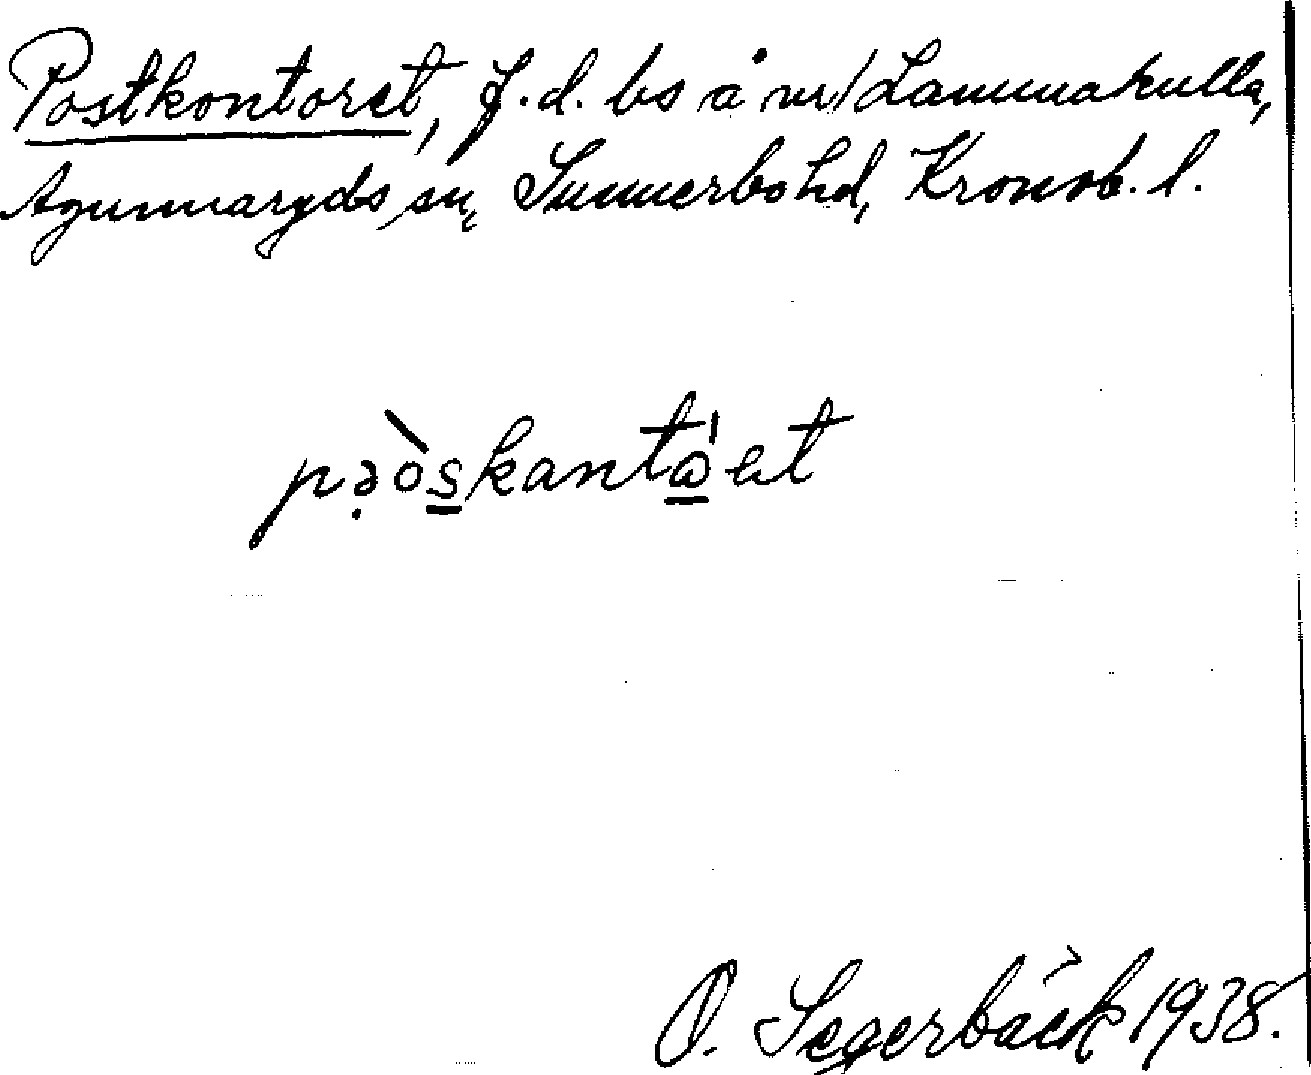 Postkontoret, f.d. bs å vr/ Lammakulla,
Agunnaryds sn, Sunnerbo hd, Kronob. l.
pəòskantǻet
O. Segerbäck 1938.